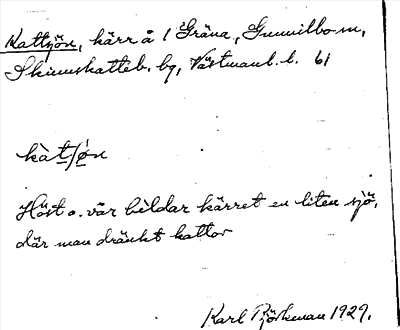 Kattsjön, kärr å 1 Gräna, Gunnilbo sn,
Skinnskatteb. bg, Västmanl. l. 61
kàtsjø̀n
Höst o. vår bildar kärret en liten sjö,
där man dränkt kattor
Karl Björkman 1929.